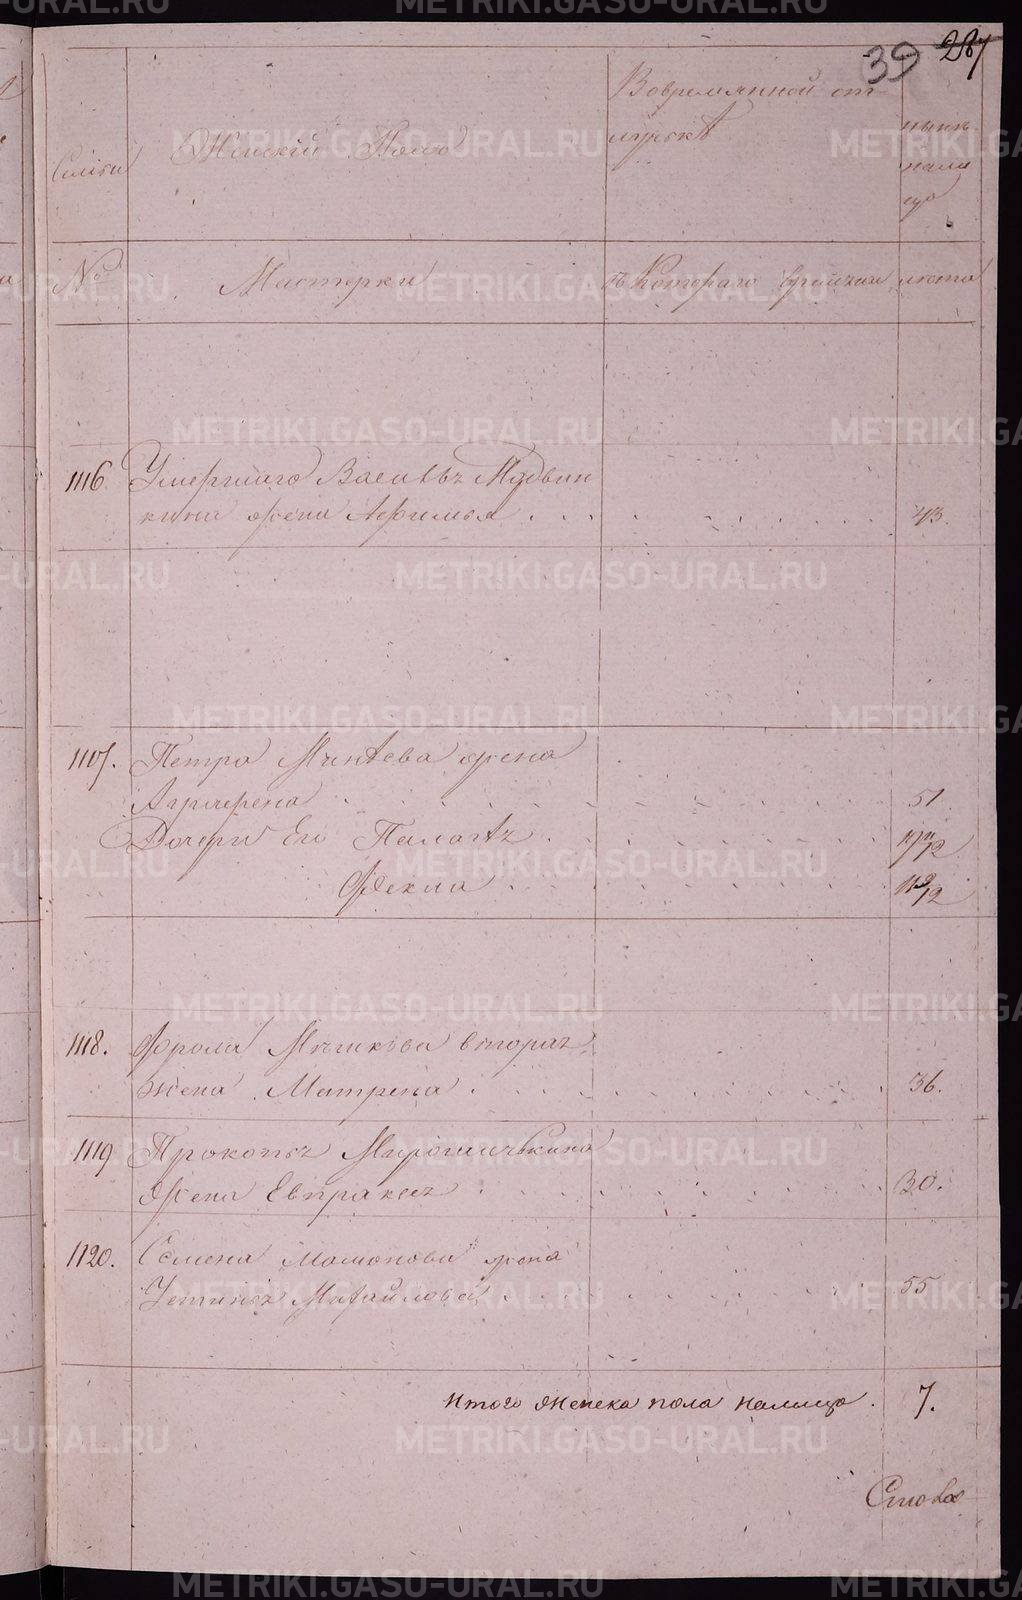 39 287
Семьи
Женский Полъ
Вовремянной от-
лучьке
ныне
нали
цо
№
Мастерки
съ Котораго времени
лета
1116 Умершаго Василья
жена Афимья 43.
1107. Петра Минеева жена
Аграфена 51
Дочери Его Палагея 17 11/12
Фекла 11 9/12
1118. Фрола Мешкова вторая
жена Матрена 36.
1119 Прокопья Мирошничькина
Жена Евпраксея 30.
1120. Семена Мамонова жена
Устинья Михайлова 55
Итого женска пола налицо 7.
METRIKI.GASO-URAL.RU